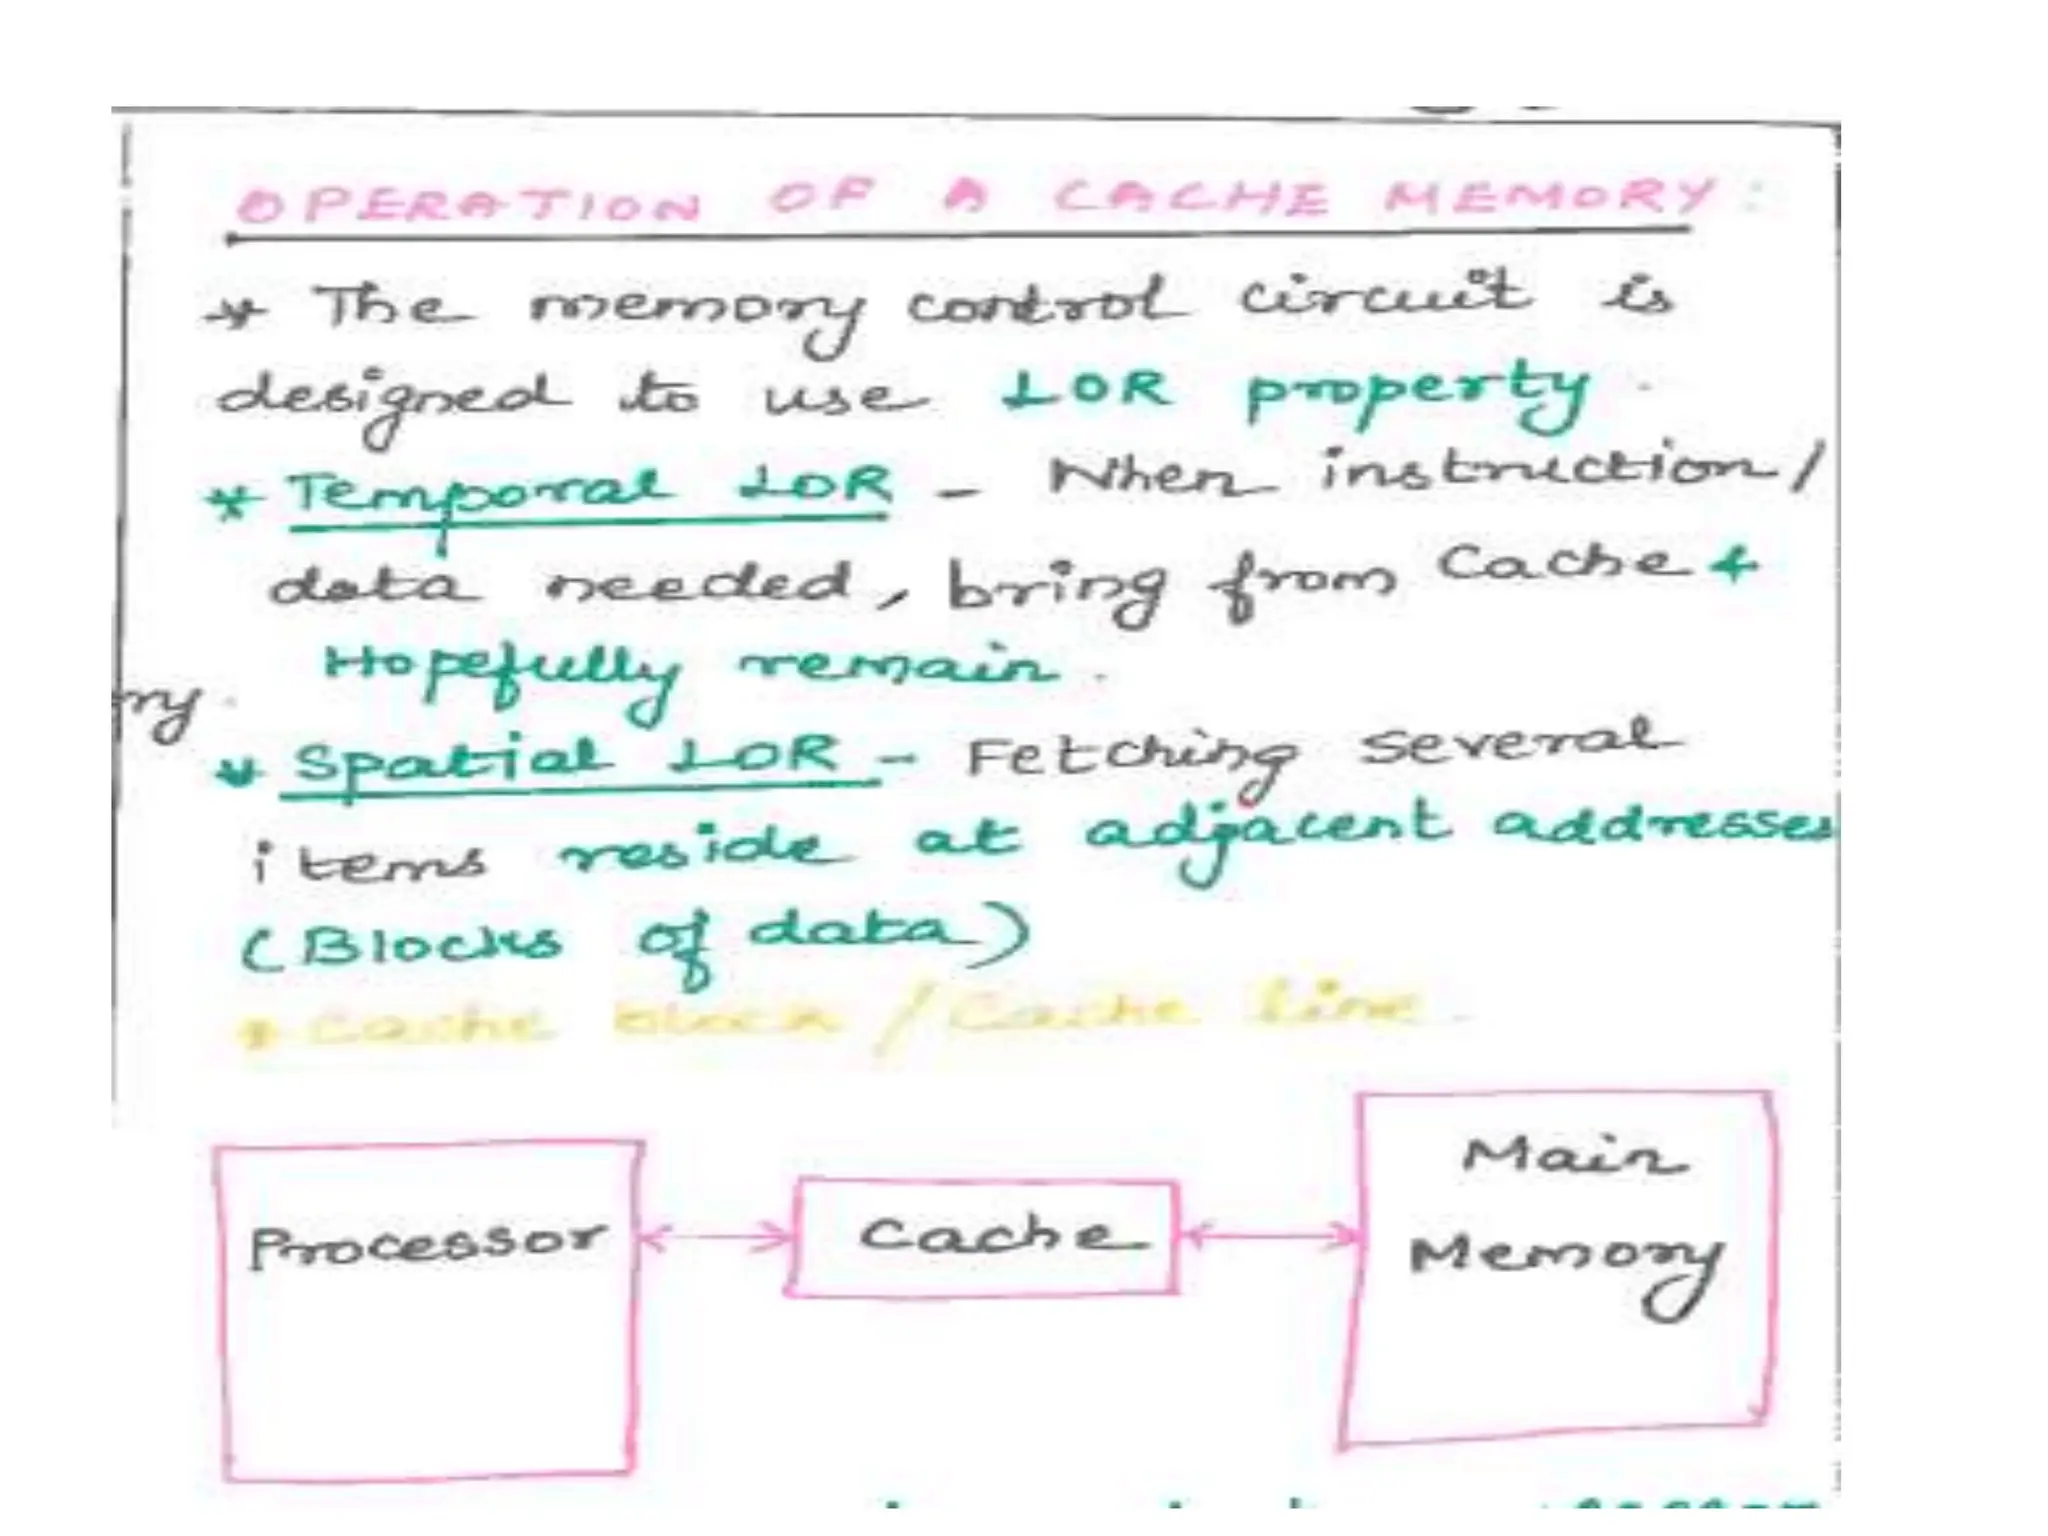 OPERATION OF A CACHE MEMORY:
* The memory control circuit is
designed to use LOR property.
* Temporal LOR - When instruction/
data needed, bring from Cache &
Hopefully remain.
ry.
* Spatial LOR - Fetching several
items reside at adjacent addresses
(Blocks of data)
* Cache block / Cache line.
Processor
Cache
Main
Memory